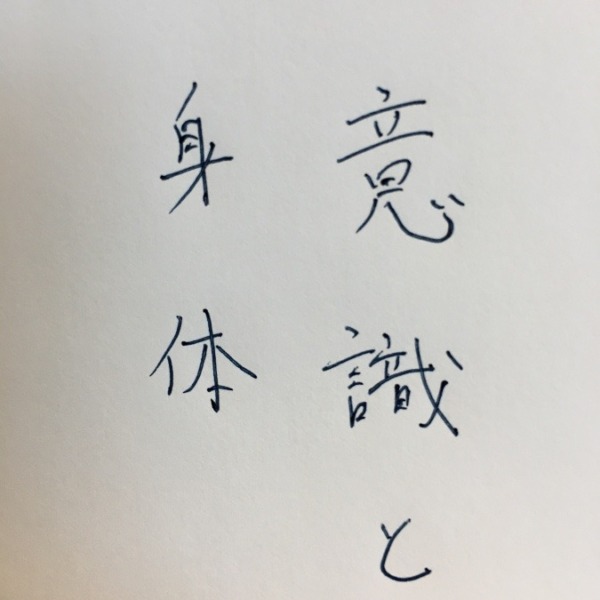 意識と
身体